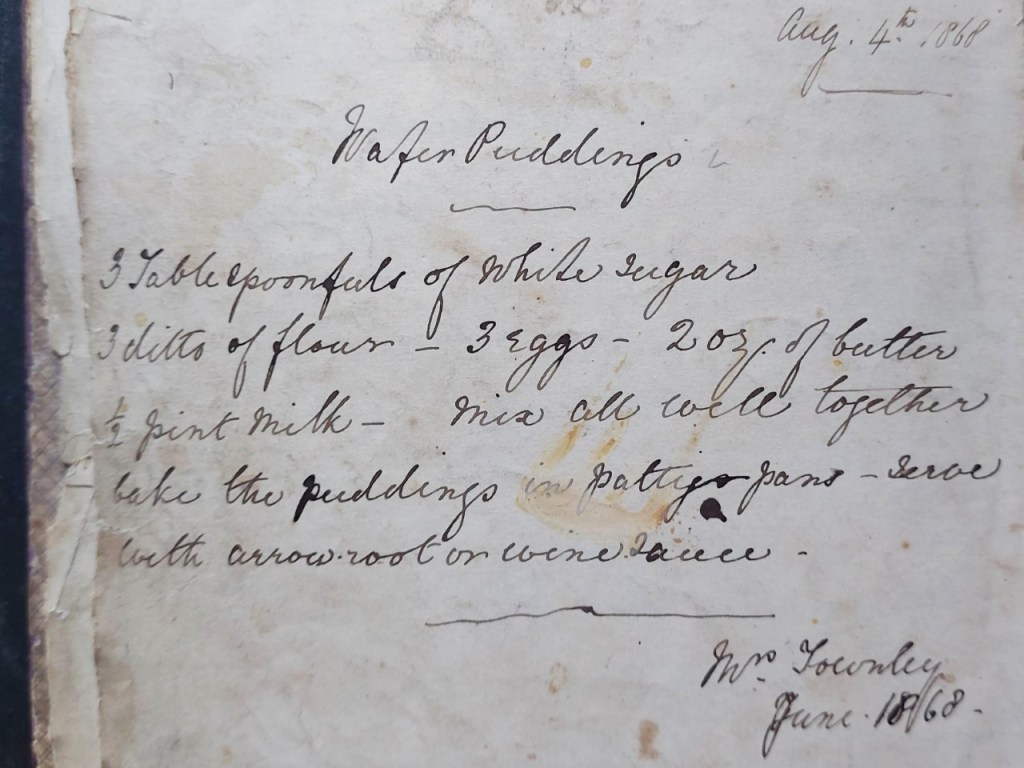 Aug. 4th 1868
Wafer Puddings
3 Tablespoonfuls of White sugar
3 ditto of flour – 3 Eggs – 2 oz. of butter
½ pint Milk – Mix all well together
bake the puddings in patty pans – serve
with arrow-root or wine sauce –
Mrs. Townley
June 1868 –